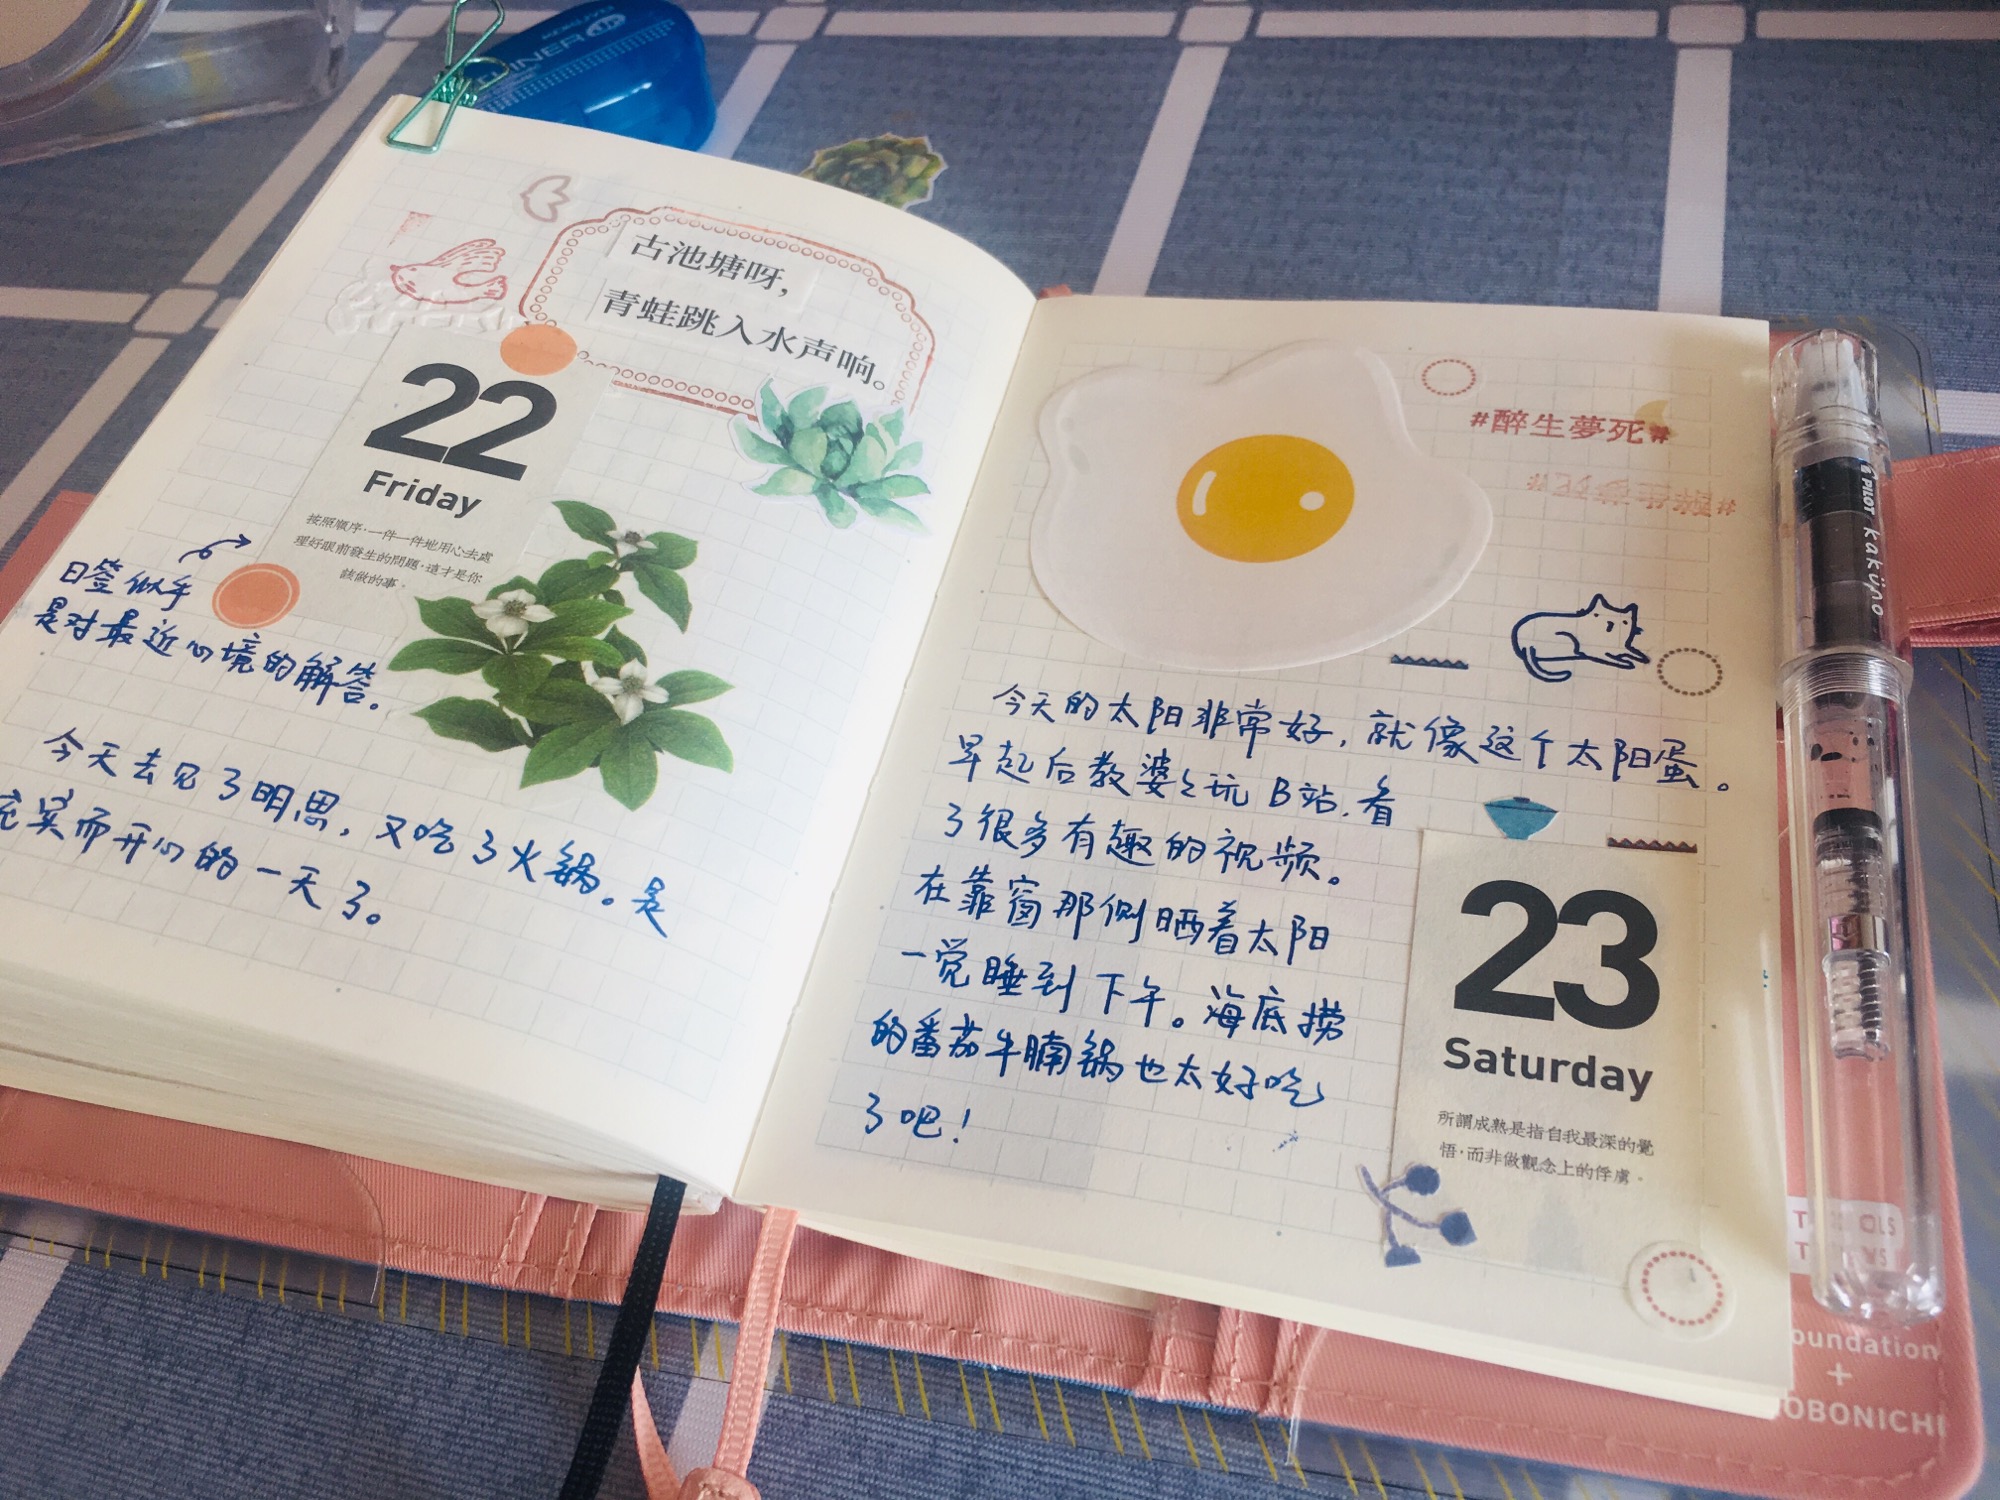 古池塘呀，
青蛙跳入水声响。
22
Friday
按照順序，一件一件地用心去處
理好眼前發生的問題，這才是你
該做的事。
日签似乎
是对最近心境的解答。
今天去见了明思，又吃了火锅。是
充实而开心的一天了。
#醉生夢死#
#醉生夢死#
今天的太阳非常好，就像这个太阳蛋。
早起后教婆々玩B站，看
了很多有趣的视频。
在靠窗那侧晒着太阳
一觉睡到下午。海底捞
的番茄牛腩锅也太好吃
了吧！
23
Saturday
所謂成熟是指自我最深的覺
悟，而非做觀念上的俘虜。
KOKUYO
PILOT kaküno
oundation
+
OBONICHI